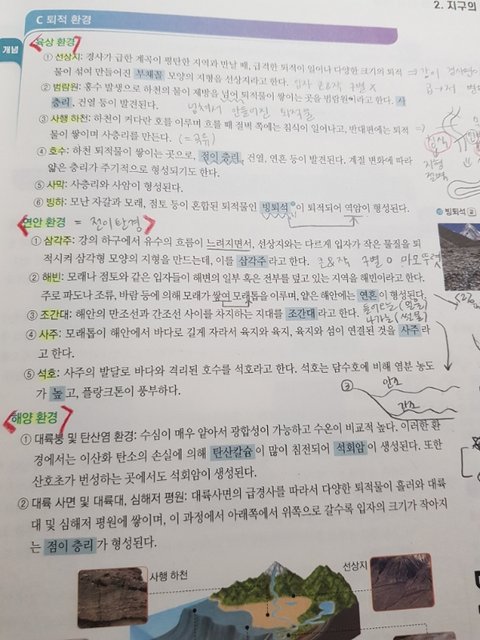 2. 지구의
C 퇴적 환경
개념
육상 환경
① 선상지: 경사가 급한 계곡이 평탄한 지역과 만날 때, 급격한 퇴적이 일어나 다양한 크기의 퇴적
물이 섞여 만들어진 부채꼴 모양의 지형을 선상지라고 한다. 입자 크기 구별 X
② 범람원: 홍수 발생으로 하천의 물이 제방을 넘어 퇴적물이 쌓이는 곳을 범람원이라고 한다. 사
층리, 건열 등이 발견된다. 넘쳐서 만들어진 퇴적물
③ 사행 하천: 하천이 커다란 호를 이루며 흐를 때 절벽 쪽에는 침식이 일어나고, 반대편에는 퇴적
물이 쌓이며 사층리를 만든다.
④ 호수: 하천 퇴적물이 쌓이는 곳으로, 점이 층리, 건열, 연흔 등이 발견된다. 계절 변화에 따라
얇은 층리가 주기적으로 형성되기도 한다.
⑤ 사막: 사층리와 사암이 형성된다.
⑥ 빙하: 모난 자갈과 모래, 점토 등이 혼합된 퇴적물인 빙퇴석이 퇴적되어 역암이 형성된다.
연안 환경 = 전이환경
① 삼각주: 강의 하구에서 유수의 흐름이 느려지면서, 선상지와는 다르게 입자가 작은 물질을 퇴
적시켜 삼각형 모양의 지형을 만드는데, 이를 삼각주라고 한다. 크기 구별 O
② 해빈: 모래나 점토와 같은 입자들이 해변의 일부 혹은 전부를 덮고 있는 지역을 해빈이라고 한다.
주로 파도나 조류, 바람 등에 의해 모래가 쌓여 모래톱을 이루며, 얕은 해안에는 연흔이 형성된다.
③ 조간대: 해안의 만조선과 간조선 사이를 차지하는 지대를 조간대라고 한다.
④ 사주: 모래톱이 해안에서 바다로 길게 자라서 육지와 육지, 육지와 섬이 연결된 것을 사주라
고 한다.
⑤ 석호: 사주의 발달로 바다와 격리된 호수를 석호라고 한다. 석호는 담수호에 비해 염분 농도
가 높고, 플랑크톤이 풍부하다.
③ 만조
간조
빙퇴석
해양 환경
① 대륙붕 및 탄산염 환경: 수심이 매우 얕아서 광합성이 가능하고 수온이 비교적 높다. 이러한 환
경에서는 이산화 탄소의 손실에 의해 탄산칼슘이 많이 침전되어 석회암이 생성된다. 또한
산호초가 번성하는 곳에서도 석회암이 생성된다.
② 대륙 사면 및 대륙대, 심해저 평원: 대륙사면의 급경사를 따라서 다양한 퇴적물이 흘러와 대륙
대 및 심해저 평원에 쌓이며, 이 과정에서 아래쪽에서 위쪽으로 갈수록 입자의 크기가 작아지
는 점이 층리가 형성된다.
사행 하천
선상지